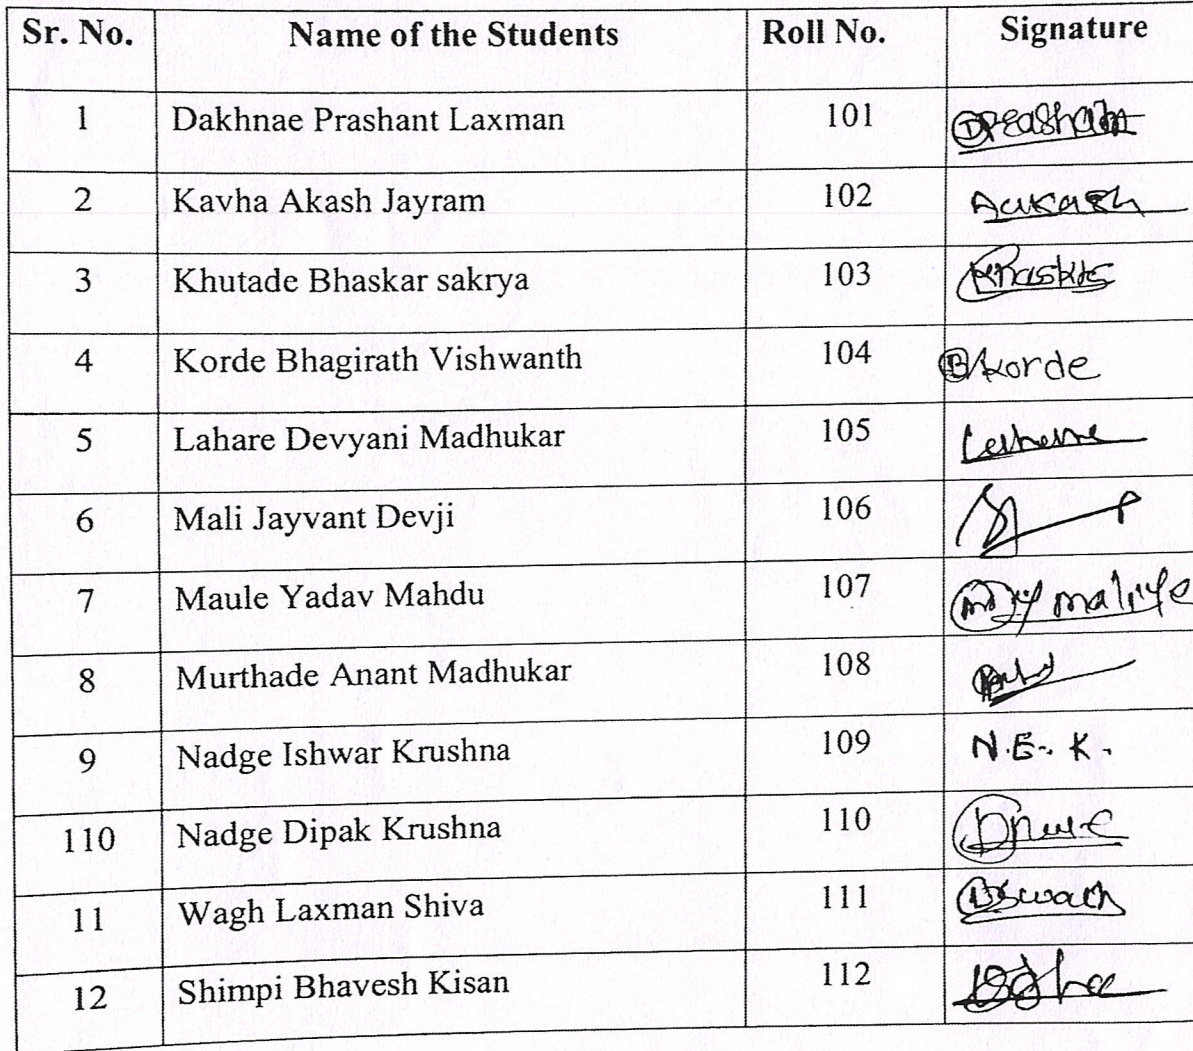 Sr. No. Name of the Students Roll No. Signature
1 Dakhnae Prashant Laxman 101
2 Kavha Akash Jayram 102 Aakash
3 Khutade Bhaskar sakrya 103
4 Korde Bhagirath Vishwanth 104 B korde
5 Lahare Devyani Madhukar 105
6 Mali Jayvant Devji 106
7 Maule Yadav Mahdu 107
8 Murthade Anant Madhukar 108
9 Nadge Ishwar Krushna 109 N.E. K.
110 Nadge Dipak Krushna 110
11 Wagh Laxman Shiva 111
12 Shimpi Bhavesh Kisan 112